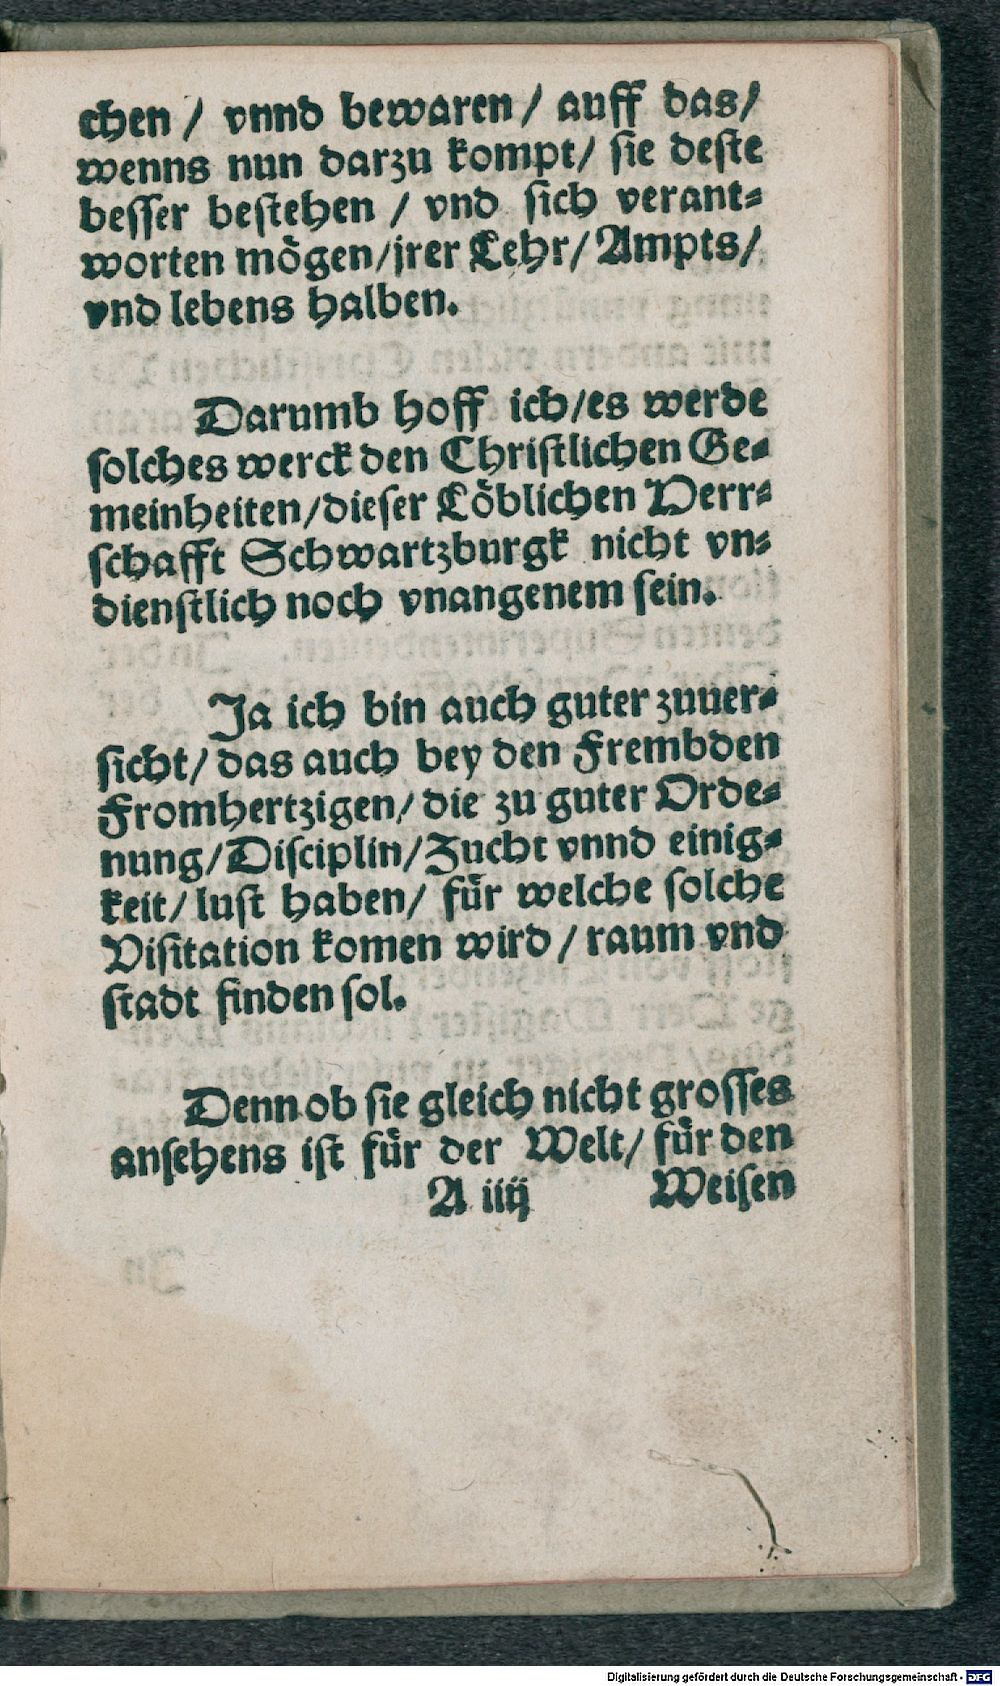 chen / vnnd bewaren / auff das/
wenns nun darzu kompt/ sie deste
besser bestehen / vnd sich verant-
worten mögen/jrer Lehr/ Ampts/
vnd lebens halben.
Darumb hoff ich/es werde
solches werck den Christlichen Ge-
meinheiten/dieser Löblichen Herr-
schafft Schwartzburgk nicht vn-
dienstlich noch vnangenem sein.
Ja ich bin auch guter zuuer-
sicht/ das auch bey den Frembden
Fromhertzigen/ die zu guter Orde-
nung/Disciplin/Zucht vnnd einig-
keit/ lust haben/ für welche solche
Visitation komen wird / raum vnd
stadt finden sol.
Denn ob sie gleich nicht grosses
ansehens ist für der Welt/ für den
A iiij Weisen
Digitalisierung gefördert durch die Deutsche Forschungsgemeinschaft - DFG